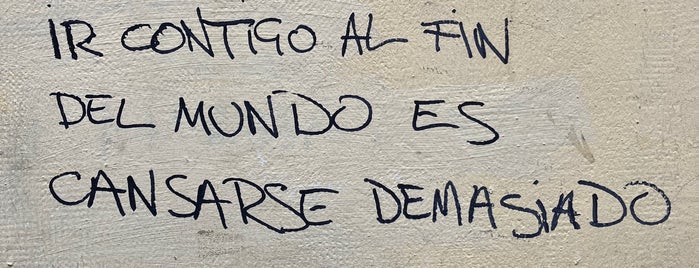 IR CONTIGO AL FIN
DEL MUNDO ES
CANSARSE DEMASIADO